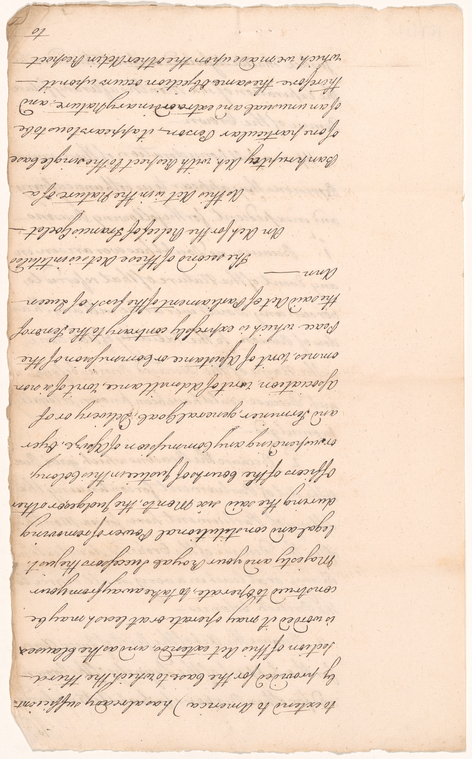 to extend to America) has already sufficient
ly provided for the Cases to which the third
section of this Act extends and as the Clause
is worded it may operate or at least may be
construed to Operate to take away from your
Majesty and your Royal Successors the just
legal and constitutional Power of removing
during the said six Months, the Judges or other
Officers of the Courts of Justice in this Colony
or suspending any Commission of Assize, Oyer
and Terminer, general Goal, Delivery or of
Association Writ of Admittance, Writ of si non
omnes, Writ of Assistance or Commission of the
Peace, which is expressly contrary to the Tenor of
the said Act of Parliament of the first of Queen
Ann —
The second of these Acts is intituled
An Act for the Relief of Francis Goelet —
As this Act is in the Nature of a
Bankruptcy Act with Respect to the single Case
of one particular Person, it appears to us to be
of an unusual and extraordinary Nature and
therefore the same Objection occurs upon it —
which we made upon the other Act, in Respect
to